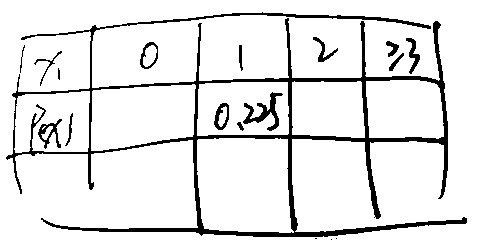 x 0 1 2 ≥3
P(x) 0.225